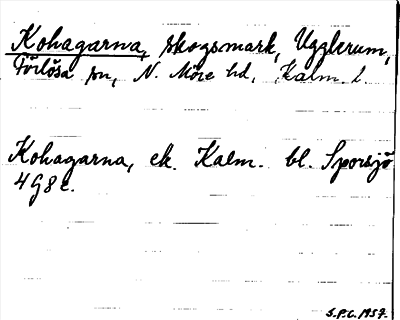 Kohagarna, skogsmark, Ugglerum,
Förlösa sn, N. Möre hd, Kalm. l.
Kohagarna, ek. Kalm. bl. Sporsjö
4G8c.
S.P.C. 1957.